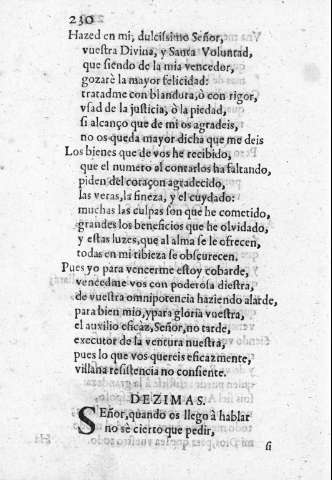 230
Hazed en mi, dulcissimo Señor,
vuestra Divina, y Santa Voluntad,
que siendo de la mia vencedor,
gozarè la mayor felicidad:
tratadme con blandura, ò con rigor,
vsad de la justicia, ò la piedad,
si alcanço que de mi os agradeis,
no os queda mayor dicha que me deis
Los bienes que de vos he recibido,
que el numero al contarlos ha faltando,
piden del coraçon agradecido,
las veras, la fineza, y el cuydado:
muchas las culpas son que he cometido,
grandes los beneficios que he olvidado,
y estas luzes, que al alma se le ofrecen,
todas en mi tibieza se obscurecen.
Pues yo para vencerme estoy cobarde,
vencedme vos con poderosa diestra,
de vuestra omnipotencia haziendo alarde,
para bien mio, y para gloria vuestra,
el auxilio eficaz, Señor, no tarde,
executor de la ventura nuestra,
pues lo que vos quereis eficazmente,
villana resistencia no consiente.
DEZIMAS.
SEñor, quando os llego à hablar
no sè cierto que pedir,
si